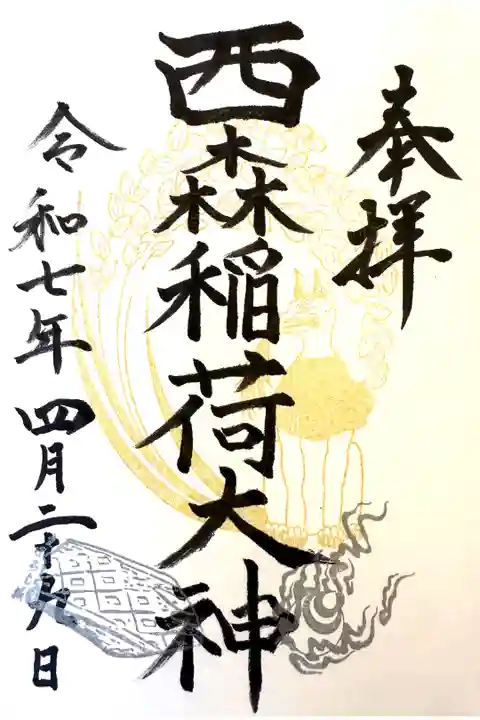 奉拝
西森稲荷大神
令和七年四月二十九日